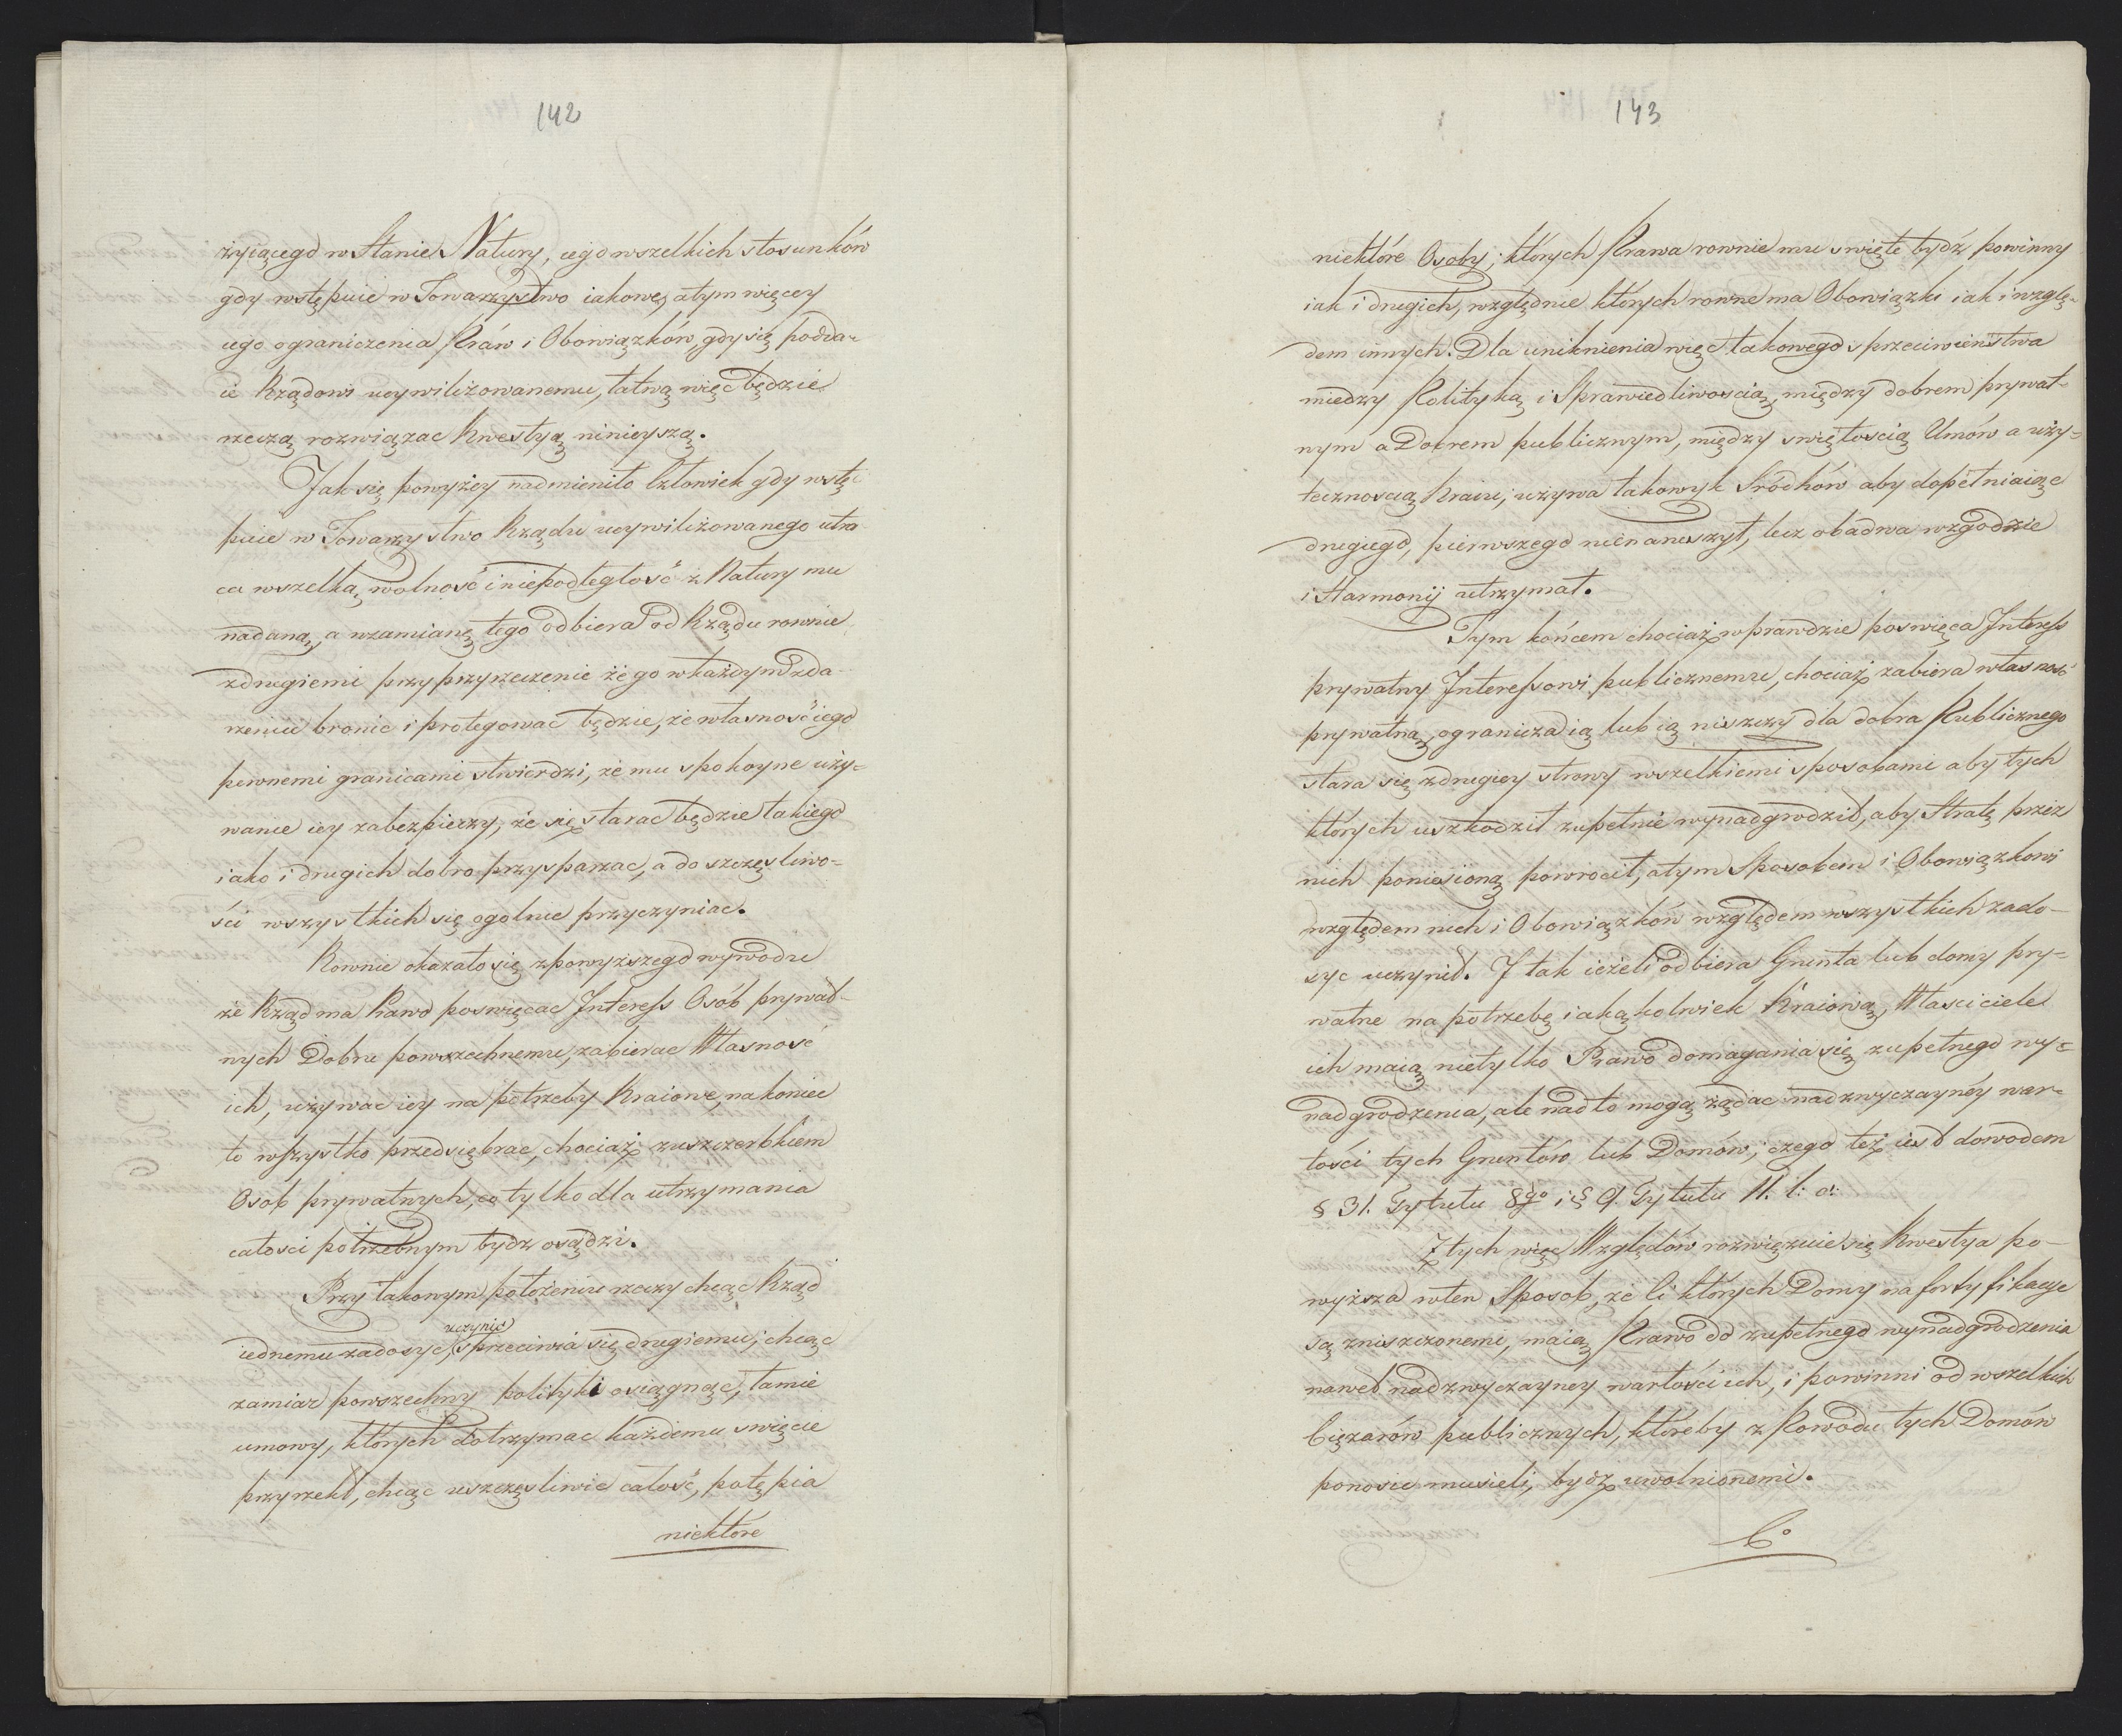 142
żyiącego w Stanie Natury, iego wszelkich stosunków
gdy wstępuie w Towarzystwo iakowe, a tym więcey
iego ograniczenia Práw i Obowiązków, gdy się podda-
ie Rządowi ucywiliżowanemu, łatwą więc będzie
rzeczą rozwiązac Kwestyą ninieyszą.
Jak się powyżey nadmieniło Człowiek gdy wstę-
puie w Towarzystwo Rządu ucywiliżowanego utra
ca wszelką wolność i niepodległość z Natury mu
nadaną, a wzamianę tego odbiera od Rządu rownie
z drugiemi przyprzyrzeczenie że go w każdym zda-
rzeniu bronic i protegować będzie, że własność iego
pewnemi granicami stwierdzi, że mu spokoyne uży-
wanie iey zabezpieczy, że się starac będzie takiego
iako i drugich dobro przysparzac, a do szczęsliwo-
ści wszystkich się ogolnie przyczyniac.
Rownie okazało się z powyższego wywodu
że Rząd ma Prawo poswięcac Interess Osób prywat-
nych Dobru powszechnemu, zabierac Własność
ich, używac iey na potrzeby Kraiowe, nakoniec
to wszystko przedsiębrac, chociaż z uszczerbkiem
Osob prywatnych, co tylko dla utrzymania
całosci potrzebnym bydz osądzi.
Przy takowym położeniu rzeczy chcąc Rząd
uczynic
iednemu zadosyc, sprzeciwia się drugiemu; chcąc
zamiar powszechny polityki osiągnąc, łamie
umowy, których dotrzymac każdemu swięcie
przyrzekł, chcąc uszczęsliwic całość, potępia
niektore
143
niektóre Osoby, których Prawa rownie mu swięte bydź powinny
iak i drugich, względnie których rowne ma Obowiązki iak i wzglę-
dem innych. Dla uniknienia więc takowego sprzeciwieństwa
miedzy Polityką i Sprawiedliwoscią, między dobrem prywat-
nym a Dobrem publicznym, między swiętoscią Umów a uży-
tecznoscią Kraiu, używa takowych Śródków aby dopełniaiąc
drugiego, pierwszego nienaruszył, lecz obadwa w zgodzie
i Harmonij utrzymał.
Tym końcem chociaż wprawdzie poswięca Interess
prywatny Interessowi publicznemu, chociaż zabiera własnosć
prywatną, ogranicza ią lub ią niszczy dla dobra Publicznego
stara się z drugiey strony wszelkiemi sposobami aby tych
których uszkodził zupełnie wynadgrodził, aby Stratę przez
nich poniesioną powrocił, a tym Sposobem i Obowiązkowi
względem nich i Obowiązków względem wszystkich zado-
syc uczynił. I tak ieżeli odbiera Grunta lub domy pry-
watne na potrzebę iakąkolwiek Kraiową, Własciciele
ich maią nietylko Prawo domagania się zupełnego wy-
nadgrodzenia, ale nadto mogą żądac nadzwyczayney war-
tości tych Gruntów lub Domów; czego też iest dowodem
§ 31. Tytułu 8go i § 9. Tytułu 11. l: a:
Z tych więc Względów rozwięzuie się Kwestya po-
wyższa w ten Sposob, że Ci których Domy na fortyfikacye
są zniszczonemi, maią Prawo do zupełnego wynadgrodzenia
nawet nadzwyczayney wartości ich, i powinni od wszelkich
Cięzarów publicznych, które by z Powodu tych Domów
ponosic musieli, bydź uwolnionemi.
C°